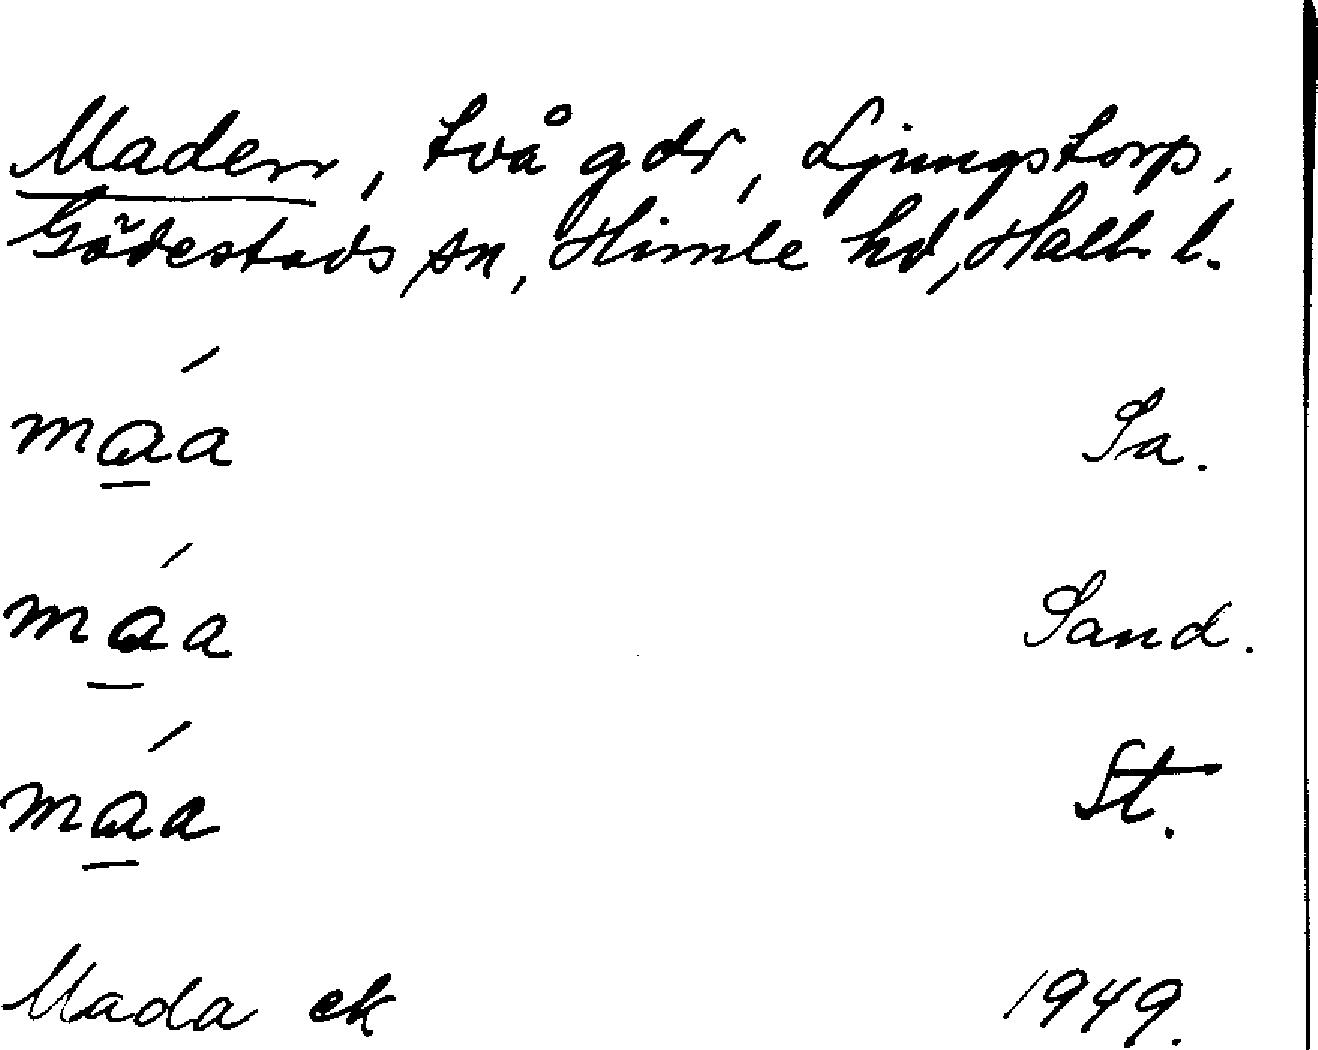 Maden, två gdr, Ljungstorp,
Gödestads sn, Himle hd, Hall. l.
ma̲´a Sa.
ma̲´a Sand.
ma̲´a St.
Mada ek 1949.